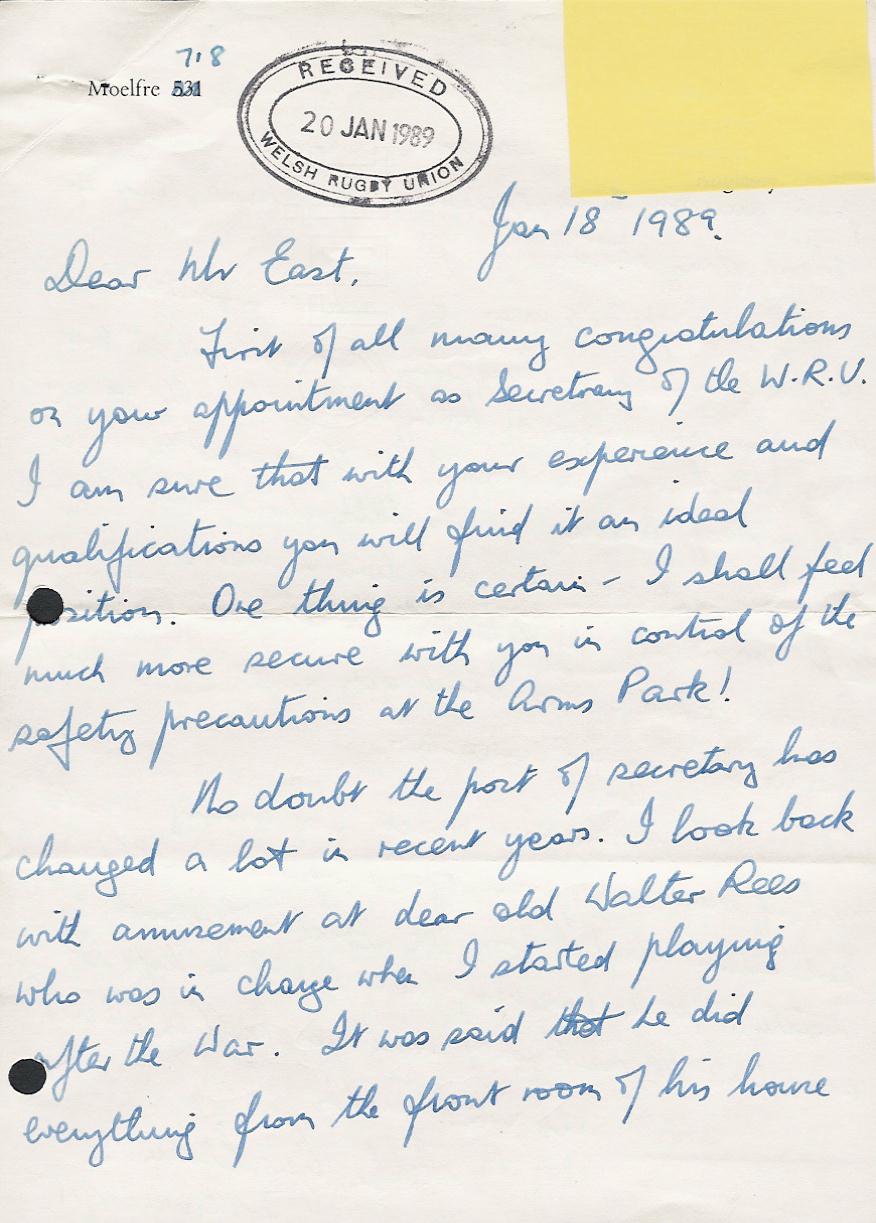 718
Moelfre 531
RECEIVED
20 JAN 1989
WELSH RUGBY UNION
Jan 18th 1989.
Dear Mr East,
First of all many congratulations
on your appointment as Secretary of the W.R.U.
I am sure that with your experience and
qualifications you will find it an ideal
position. One thing is certain - I shall feel
much more secure with you in control of the
safety precautions at the Arms Park!
No doubt the post of secretary has
changed a lot in recent years. I look back
with amusement at dear old Walter Rees
who was in charge when I started playing
after the War. It was said that he did
everything from the front room of his house